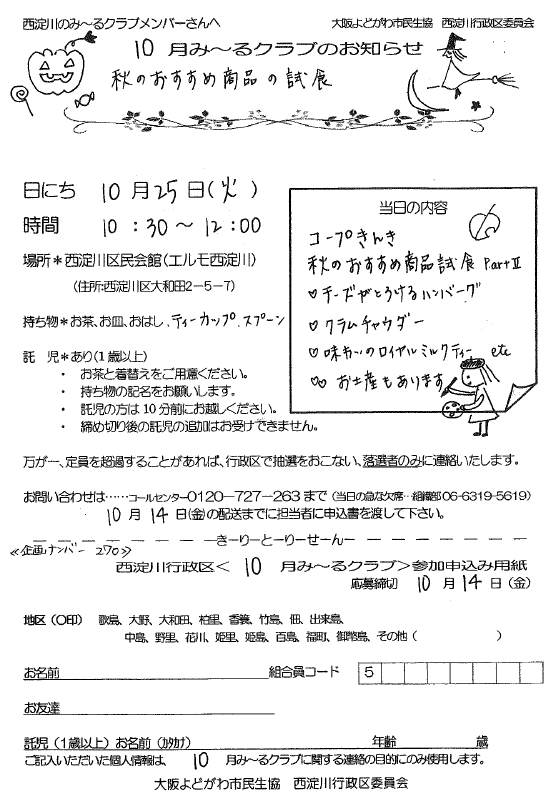 西淀川のみ～るクラブメンバーさんへ
大阪よどがわ市民生協 西淀川行政区委員会
10 月み～るクラブのお知らせ
秋のおすすめ商品の試食
日にち 10月25日(火)
時間 10:30～12:00
場所＊西淀川区民会館(エルモ西淀川)
(住所:西淀川区大和田2－5－7)
持ち物＊お茶、お皿、おはし、ティーカップ、スプーン
託 児＊あり(1歳以上)
・ お茶と着替えをご用意ください。
・ 持ち物の記名をお願いします。
・ 託児の方は10分前にお越しください。
・ 締め切り後の託児の追加はお受けできません。
当日の内容
コープきんき
秋のおすすめ商品試食 PartⅡ
♡チーズがとろけるハンバーグ
♡クラムチャウダー
♡味わいのロイヤルミルクティー etc
♡♡お土産もあります
万が一、定員を超過することがあれば、行政区で抽選をおこない、落選者のみに連絡いたします。
お問い合わせは……コールセンター0120－727－263まで(当日の急な欠席…組織部06-6319-5619)
10月14日(金)の配送までに担当者に申込書を渡して下さい。
きーりーとーりーせーん
≪企画ナンバー 270≫
西淀川行政区＜ 10 月み～るクラブ＞参加申込み用紙
応募締切 10月14日(金)
地区(○印) 歌島、大野、大和田、柏里、香簑、竹島、佃、出来島、
中島、野里、花川、姫里、姫島、百島、福町、御幣島、その他( )
お名前 組合員コード 5
お友達
託児(1歳以上)お名前(ｶﾀｶﾅ) 年齢 歳
ご記入いただいた個人情報は、 10 月み～るクラブに関する連絡の目的にのみ使用します。
大阪よどがわ市民生協 西淀川行政区委員会